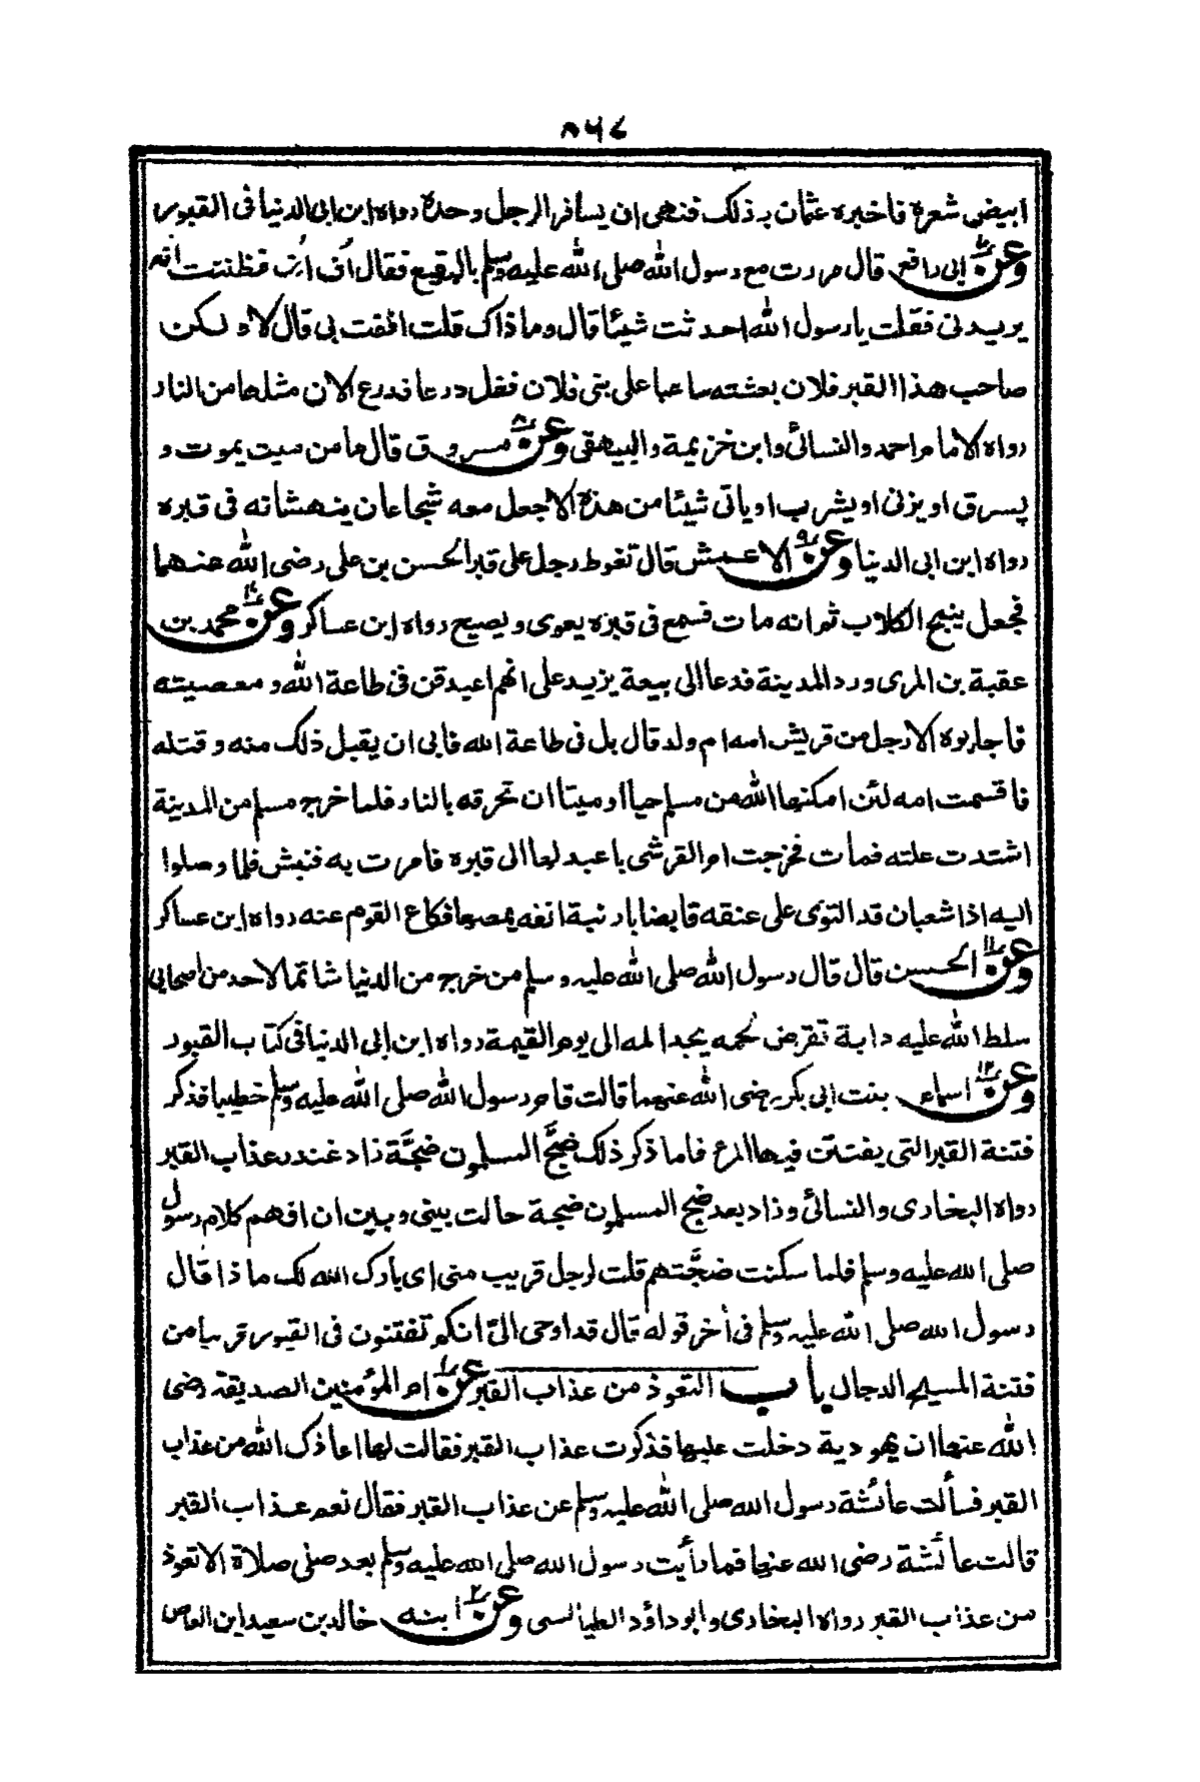 ۵۶۷
ابيض شعره فاخبره عثمان بذلك فنهى ان يسافر الرجل وحده رواه ابن ابى الدنيا فى القبور
وعن ابى رافع قال مررت مع رسول الله صلى الله عليه وسلم بالبقيع فقال اُف اُف فظننت انه
يريدنى فقلت يا رسول الله احدثت شيئا قال وما ذاك قلت اففت بى قال لا ولكن
صاحب هذا القبر فلان بعثته ساعيا على بنى فلان فغل درعا فدرع الان مثلها من النار
رواه الامام احمد والنسائى وابن خزيمة والبيهقى وعن ۸ مسروق قال ما من ميت يموت و
يسرق او يزنى او يشرب او ياتى شيئا من هذه الا جعل معه شجاعان ينهشانه فى قبره
رواه ابن ابى الدنيا وعن ۹ الاعمش قال تغوط رجل على قبر الحسن بن على رضى الله عنهما
فجعل ينبح الكلاب ثم انه مات فسمع فى قبره يعوى ويصيح رواه ابن عساكر وعن ۱۰ محمد بن
عقبة بن المرى ورد المدينة فدعا الى بيعة يزيد على انهم اعبد قن فى طاعة الله ومعصيته
فاجابوه الا رجل من قريش امه ام ولد قال بل فى طاعة الله فابى ان يقبل ذلك منه وقتله
فاقسمت امه لئن امكنها الله من مسلم حيا او ميتا ان تحرقه بالنار فلما خرج مسلم من المدينة
اشتدت علته فمات فخرجت ام القرشى باعبد لها الى قبره فامرت به فنبش فلما وصلوا
اليه اذا شعبان قد التوى على عنقه قابضا بارنبة انفه يمصها فكاع القوم عنه رواه ابن عساكر
وعن ۱۱ الحسن قال قال رسول الله صلى الله عليه وسلم من خرج من الدنيا شاتما لاحد من اصحابى
سلط الله عليه دابة تقرض لحمه يجد المه الى يوم القيمة رواه ابن ابى الدنيا فى كتاب القبور
وعن ۱۲ اسماء بنت ابى بكر رضى الله عنهما قالت قام رسول الله صلى الله عليه وسلم خطيبا فذكر
فتنة القبر التى يفتتن فيها المرء فلما ذكر ذلك ضجَّ المسلمون ضجَّة زاد غندر عذاب القبر
رواه البخارى والنسائى وزاد بعد ضج المسلمون ضجة حالت بينى وبين ان افهم كلام رسول
صلى الله عليه وسلم فلما سكنت ضجَّتهم قلت لرجل قريب منى اى بارك الله لك ماذا قال
رسول الله صلى الله عليه وسلم فى أخر قوله قال قد اوحى الىّ انكم تفتنون فى القبور قريبا من
فتنة المسيح الدجال باب التعوذ من عذاب القبر عن ۱ ام المؤمنين الصديقة رضى
الله عنها ان يهودية دخلت عليها فذكرت عذاب القبر فقالت لها اعاذك الله من عذاب
القبر فسألت عائشة رسول الله صلى الله عليه وسلم عن عذاب القبر فقال نعم عذاب القبر
قالت عائشة رضى الله عنها فما رأيت رسول الله صلى الله عليه وسلم بعد صلى صلاة الا تعوذ
من عذاب القبر رواه البخارى وابو داؤد الطيالسى وعن ۲ ابنه خالد بن سعيد ابن العاص